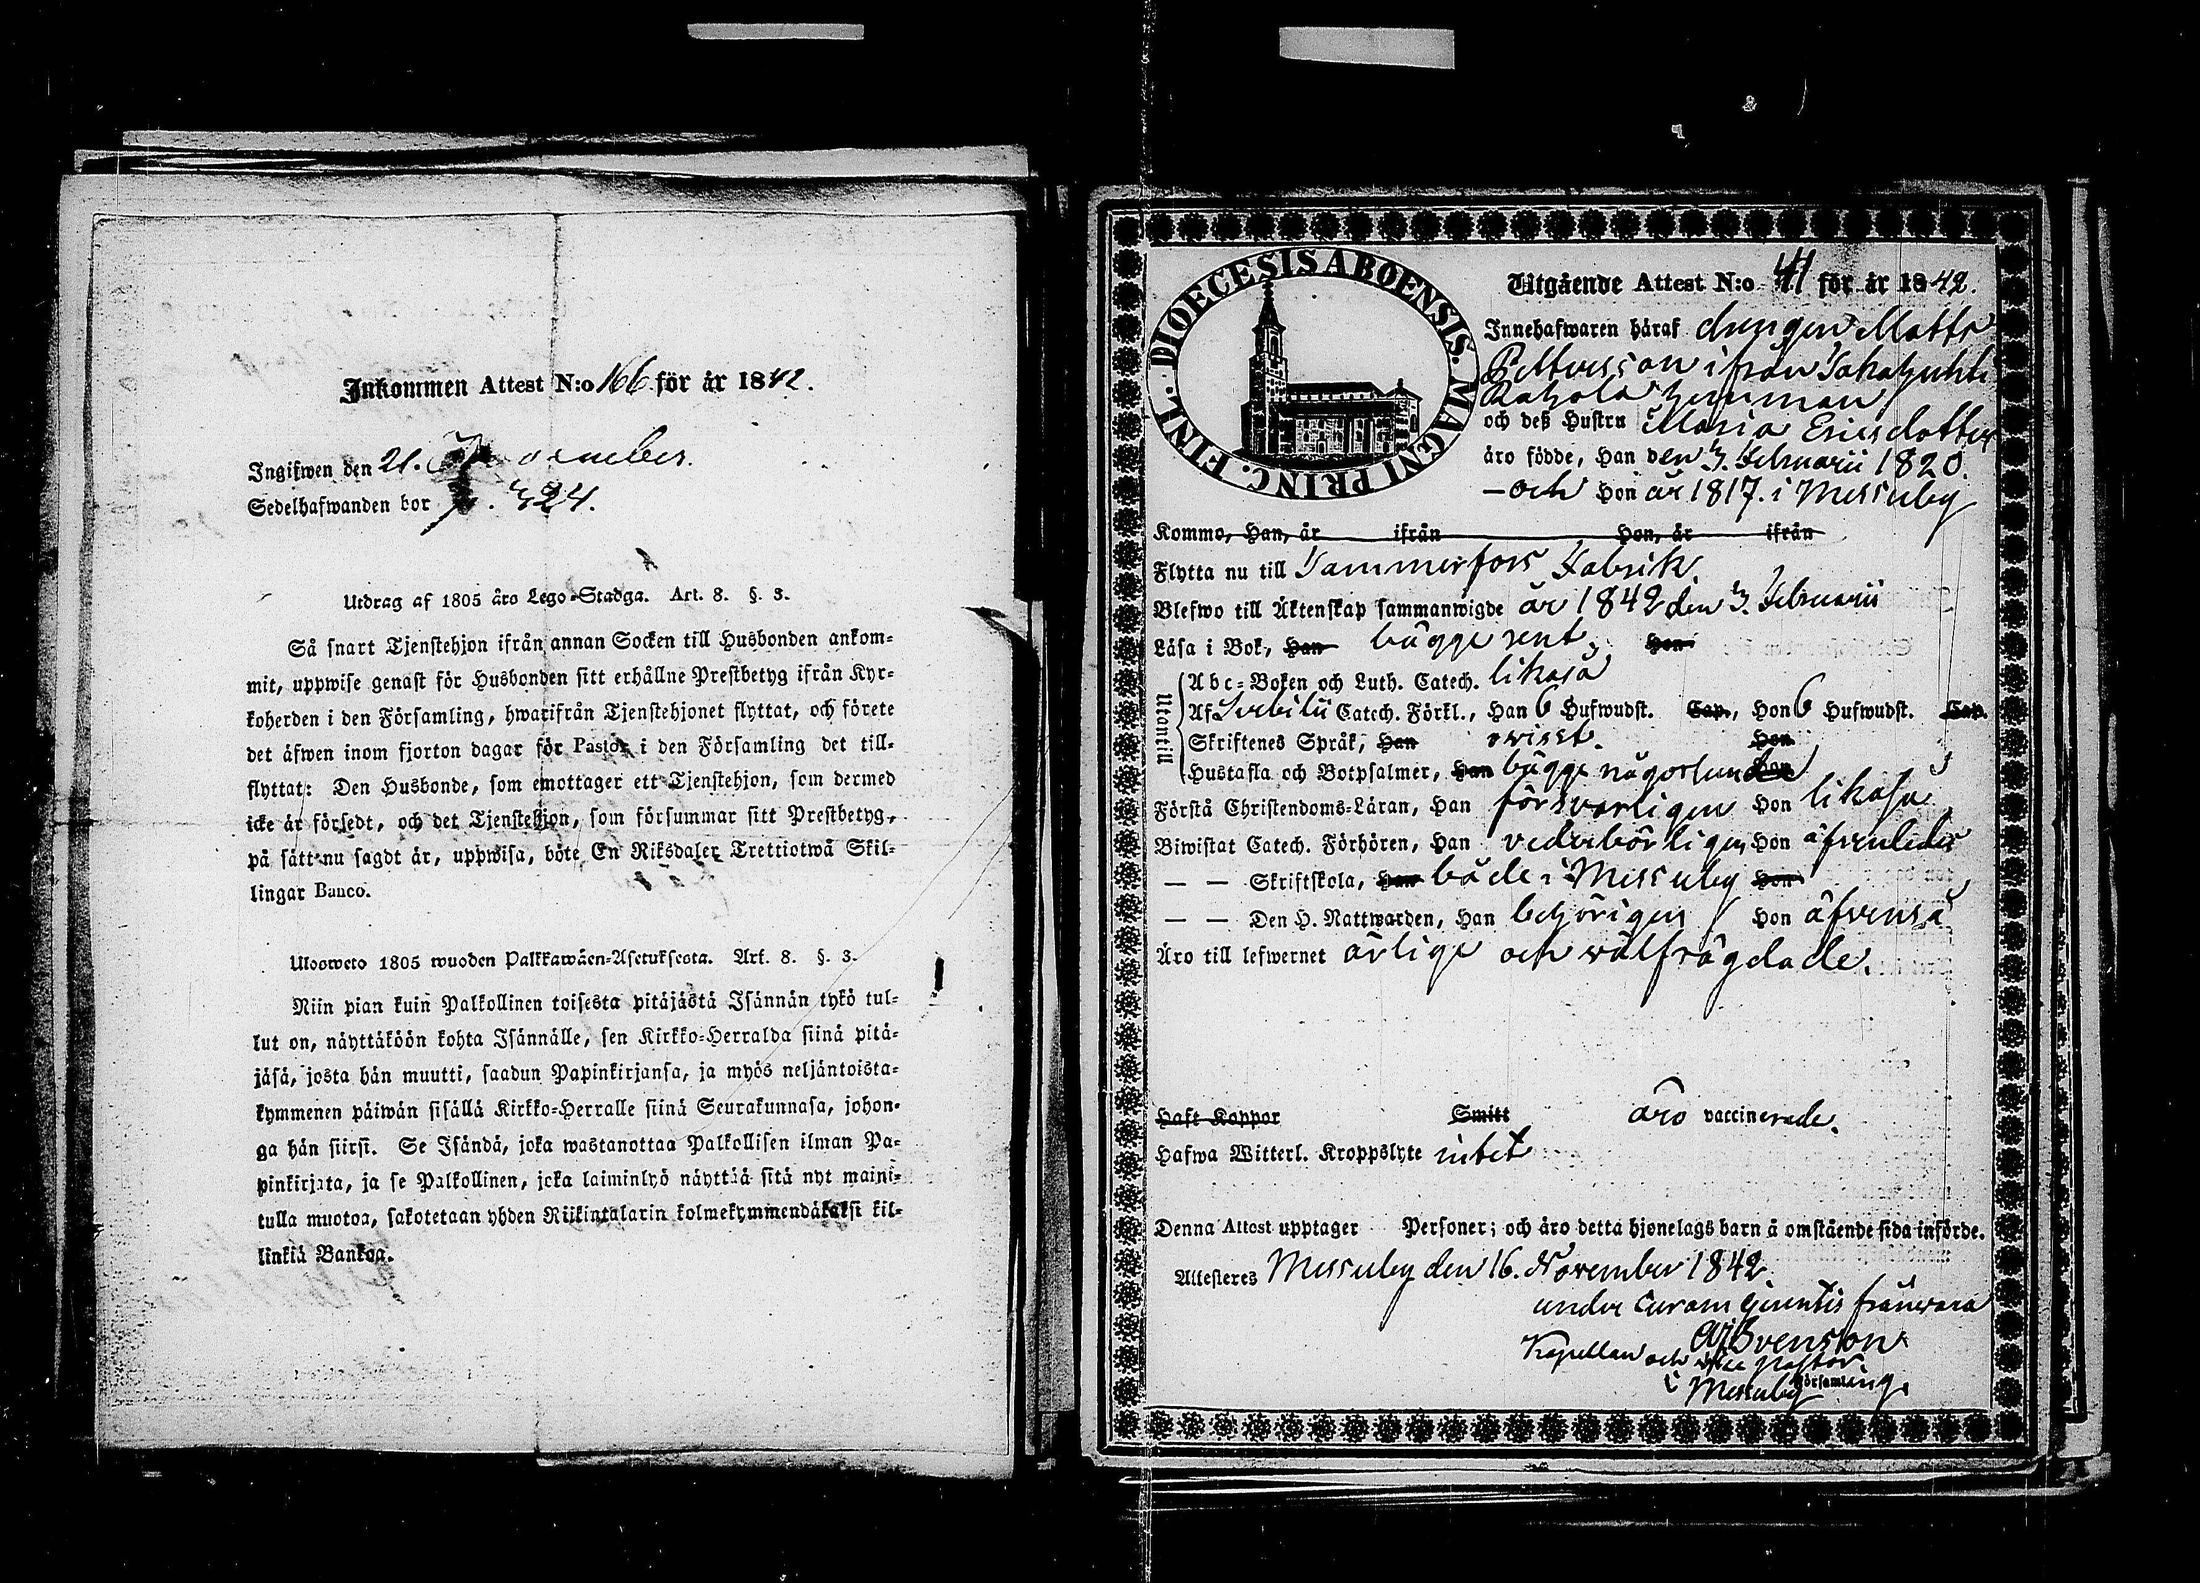 Inkommen Attest N:o 166 för år 1842.
Ingifwen den 21. November.
Sedelhafwanden bor p. 324.
Utdrag af 1805 åro Lego-Stadga. Art. 8. §. 3.
Så snart Tjenstehjon ifrån annan Socken till Husbonden ankom-
mit, uppwise genast för Husbonden sitt erhållne Prestbetyg ifrån Kyr-
koherden i den Församling, hwarifrån Tjenstehjonet flyttat, och förete
det äfwen inom fjorton dagar för Pastor i den Församling det till-
flyttat: Den Husbonde, som emottager ett Tjenstehjon, som dermed
icke är försedt, och det Tjenstehjon, som försummar sitt Prestbetyg,
på sätt nu sagdt är, uppwisa, böte En Riksdaler Trettiotwå Skil-
lingar Banco.
Ulosweto 1805 wuoden Palkkawäen-Asetuksesta. Art. 8. §. 3.
Niin pian kuin Palkollinen toisesta pitäjästä Isännän tykö tul-
lut on, näyttäköön kohta Isännälle, sen Kirkko-Herralda siinä pitä-
jäsä, josta hän muutti, saadun Papinkirjansa, ja myös neljäntoista-
kymmenen päiwän sisällä Kirkko-Herralle siinä Seurakunnasa, johon-
ga hän siirsi. Se Isändä, joka wastanottaa Palkollisen ilman Pa-
pinkirjata, ja se Palkollinen, joka laiminlyö näyttää sitä nyt maini-
tulla muotoa, sakotetaan yhden Riikintalarin kolmekymmendäkaksi kil-
linkiä Bankoa.
DIOECESIS ABOENSIS. MAGNI PRINC. FINL.
Utgående Attest N:o 41 för år 1842.
Innehafwaren häraf drengen Matts
Pettersson ifrån Takahuhti
Rahola hemman
och deß Hustru Maria Ericsdotter
äro födde, Han den 3. Februarii 1820.
– och Hon år 1817. i Messuby
Komme, Han, år ifrån Hon, år ifrån
Flytta nu till Tammerfors Fabrik.
Blefwo till Äktenskap sammanwigde år 1842 den 3. Februarii
Läsa i Bok, Han bägge rent, Hon
Utantill
Abc-Boken och Luth. Catech. likaså
Af Svebilii Catech. Förkl., Han 6 Hufwudst. Cap., Hon 6 Hufwudst. Cap.
Skriftenes Språk, Han ovisst. Hon
Hustafla och Botpsalmer, Han bägge någorlunda Hon
Förstå Christendoms-Läran, Han försvarligen Hon likaså
Biwistat Catech. Förhören, Han vederbörligen Hon äfvenledes
— — Skriftskola, Han både i Messuby Hon
— — Den H. Nattwarden, Han behörigen Hon äfvenså
Äro till lefwernet ärlige och wälfrägdade.
Haft Koppor Smitt äro vaccinerade.
Hafwa Witterl. Kroppslyte intet
Denna Attest upptager Personer; och äro detta hjonelags barn å omstående sida införde.
Attesteres Messuby den 16. November 1842.
under Curam Gerentis frånvaro
Svenson
Kapellan och vice pastor
i Messuby Församling.